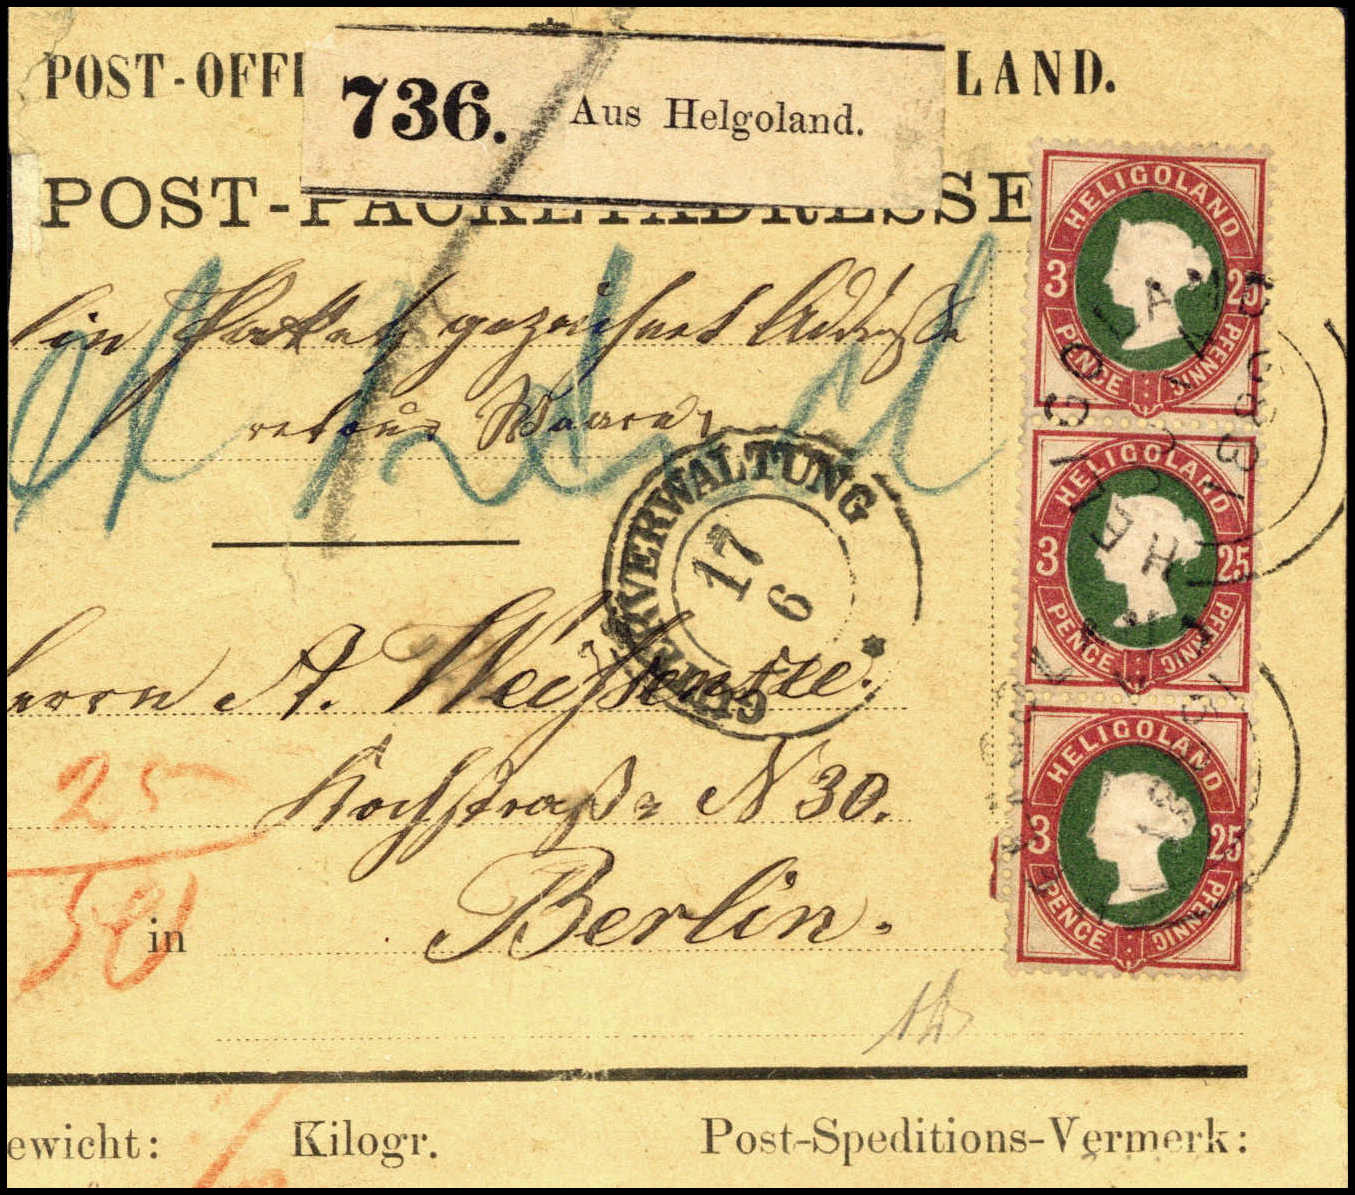 POST-OFFI LAND.
736. Aus Helgoland.
POST-PACKETADRESSE
Ein Packet gezeichnet Adresse
retour Waaren
Herrn A. Weissensee.
Kochstraße N 30.
in Berlin.
25
50
GÜTERVERWALTUNG
17
6
HELIGOLAND
3 25
PENCE PFENNIG
HELIGOLAND
3 25
PENCE PFENNIG
HELIGOLAND
3 25
PENCE PFENNIG
HELIGOLAND
ewicht: Kilogr. Post-Speditions-Vermerk: